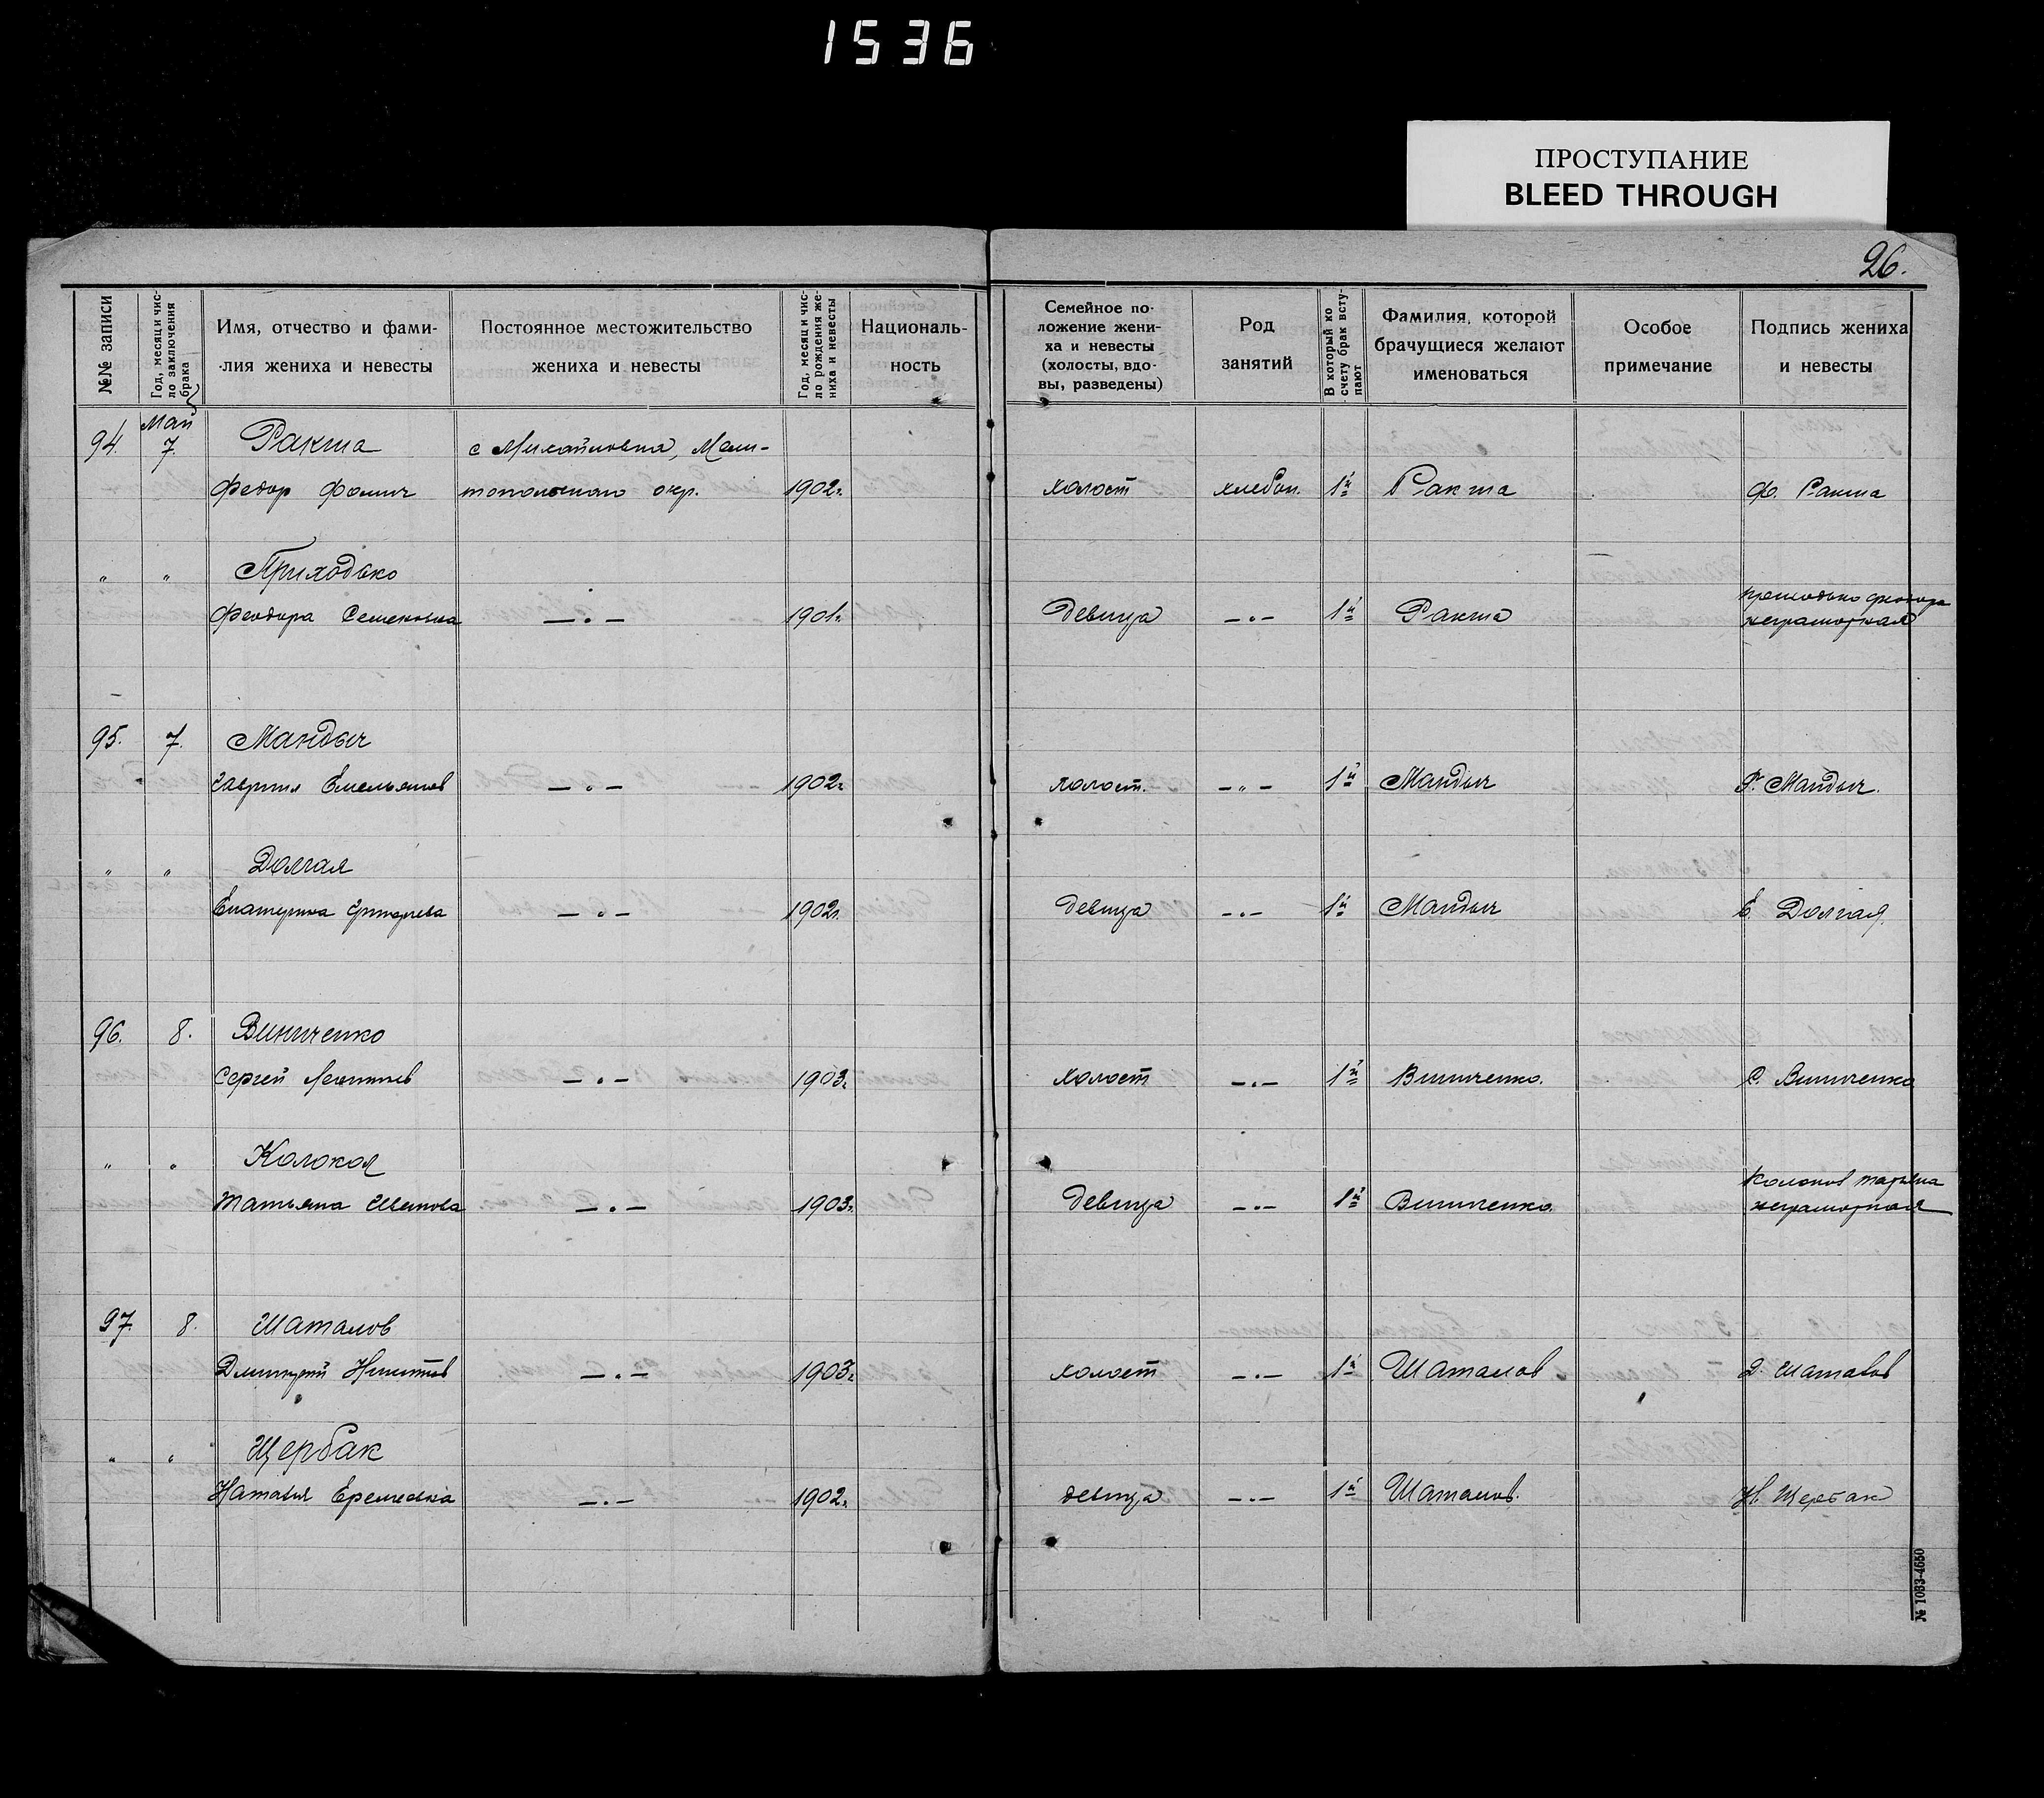 1536
ПРОСТУПАНИЕ
BLEED THROUGH
26.
№№ записи
Год, месяц и чис-
ло заключения
брака
Имя, отчество и фами-
лия жениха и невесты
Постоянное местожительство
жениха и невесты
Год, месяц и чис-
ло рождения же-
ниха и невесты
Националь-
ность
Семейное по-
ложение жени-
ха и невесты
(холосты, вдо-
вы, разведены)
Род
занятий
В который по
счету брак всту-
пают
Фамилия, которой
брачущиеся желают
именоваться
Особое
примечание
Подпись жениха
и невесты
Май
94. 7. Ракша с Михайловка, Мели-
Федор Фомич топольского окр. 1902г. холост хлебоп. 1й Ракша Ф. Ракша
" " Приходько
Феодора Семеновна —"— 1901г. девица —"— 1й Ракша
Приходько Феодора
неграмотная
95. 7. Мандыч
Гаврил Емельянов —"— 1902г. холост. —"— 1й Мандыч Г. Мандыч.
" " Долгая
Екатерина Григорьева —"— 1902г. девица —"— 1й Мандыч Е. Долгая.
96. 8. Виниченко
Сергей Леонтьев —"— 1903г. холост —"— 1й Виниченко. С. Виниченко
" " Колокол
Татьяна Иванова —"— 1903г. девица —"— 1й Виниченко.
Колокол Татьяна
неграмотная
97. 8. Шаталов
Дмитрий Никитов —"— 1903г. холост —"— 1й Шаталов Д. Шаталов
" " Щербак
Наталья Еремеевна —"— 1902г. девица —"— 1й Шаталов. Н. Щербак
№ 1033-4650